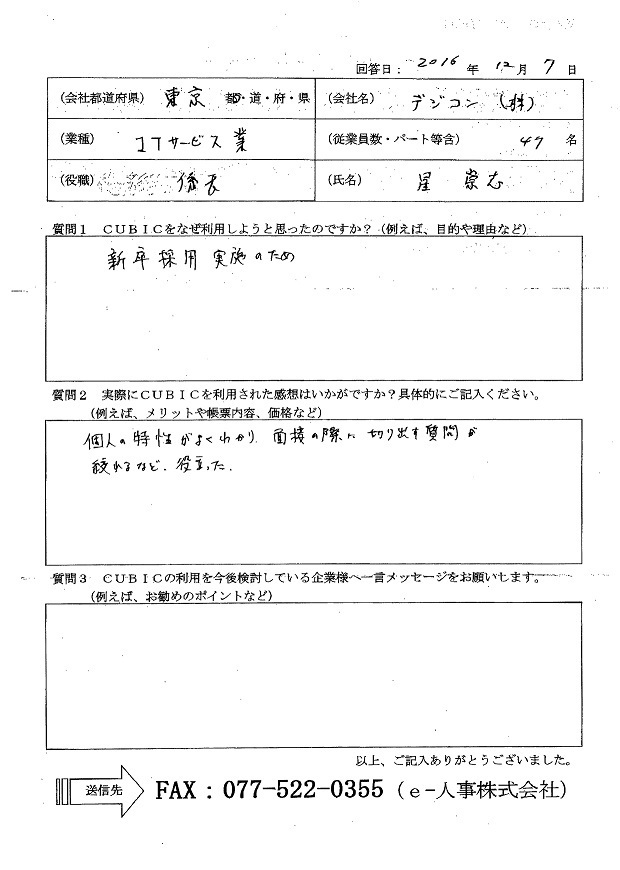 回答日： 2016 年 12 月 7 日
（会社都道府県） 東京 都・道・府・県 （会社名） デジコン（株）
（業種） ITサービス業 （従業員数・パート等含） 47 名
（役職） 係長 （氏名） 星 崇志
質問１　ＣＵＢＩＣをなぜ利用しようと思ったのですか？（例えば、目的や理由など）
新卒採用実施のため
質問２　実際にＣＵＢＩＣを利用された感想はいかがですか？具体的にご記入ください。
（例えば、メリットや帳票内容、価格など）
個人の特性がよくわかり、面接の際に切り出す質問が
絞れるなど、役立った.
質問３　ＣＵＢＩＣの利用を今後検討している企業様へ一言メッセージをお願いします。
（例えば、お勧めのポイントなど）
以上、ご記入ありがとうございました。
送信先 FAX：077-522-0355（ｅ−人事株式会社）